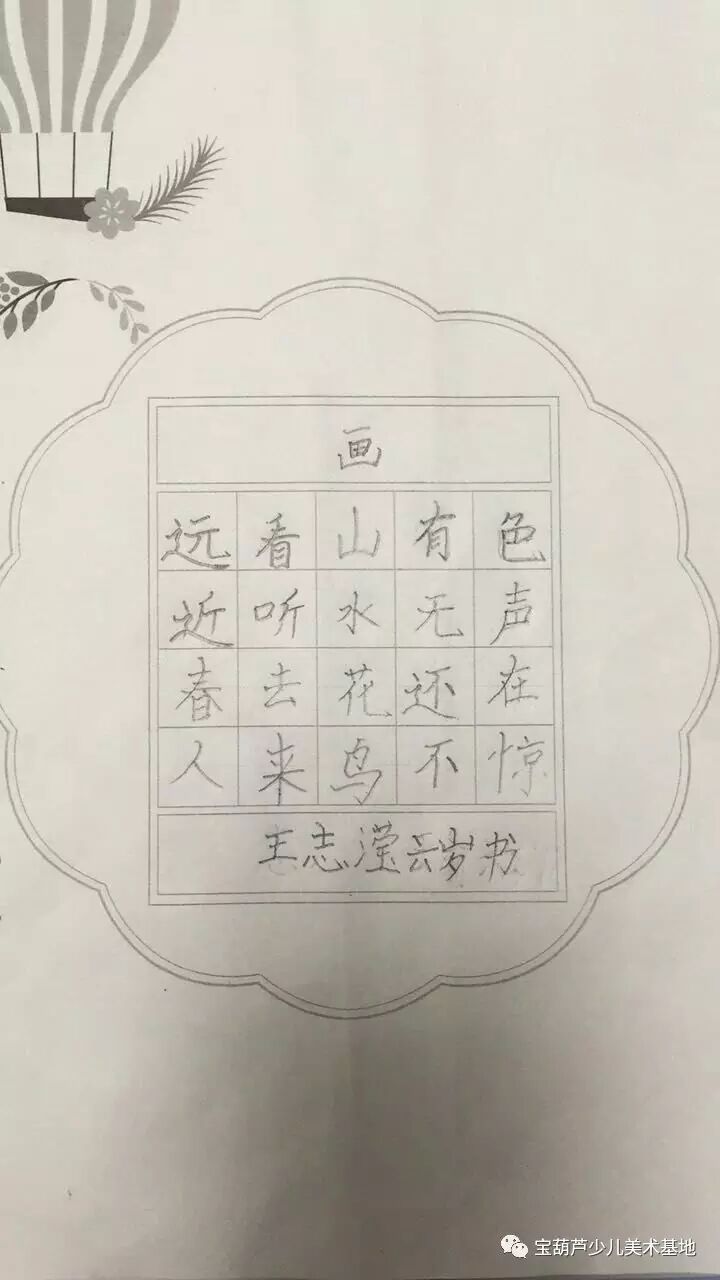 画
远看山有色
近听水无声
春去花还在
人来鸟不惊
王志滢六岁书
宝葫芦少儿美术基地